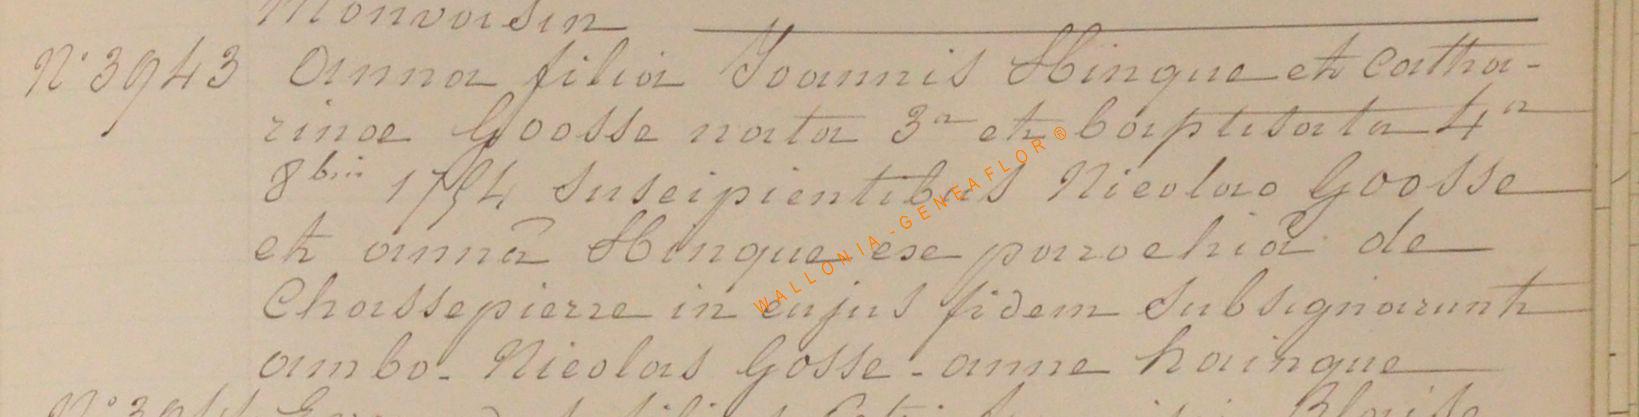 Monvoisin
N° 3943 Anna filia Joannis Hinque et Catha-
rinae Goosse nata 3a et baptisata 4a
8bris 1794 suscipientibus Nicolao Goosse
et annâ Hinque ex parochiâ de
Chassepierre in cujus fidem subsignarunt
ambo - Nicolas Gosse - anne hainque
WALLONIA-GENEAFLOR®